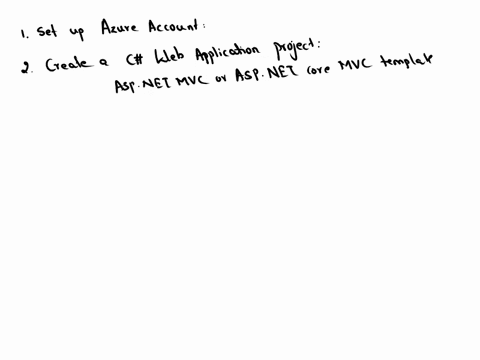 1. Set up Azure Account:
2. Create a C# Web Application project:
Asp.NET MVC or ASP.NET core MVC template